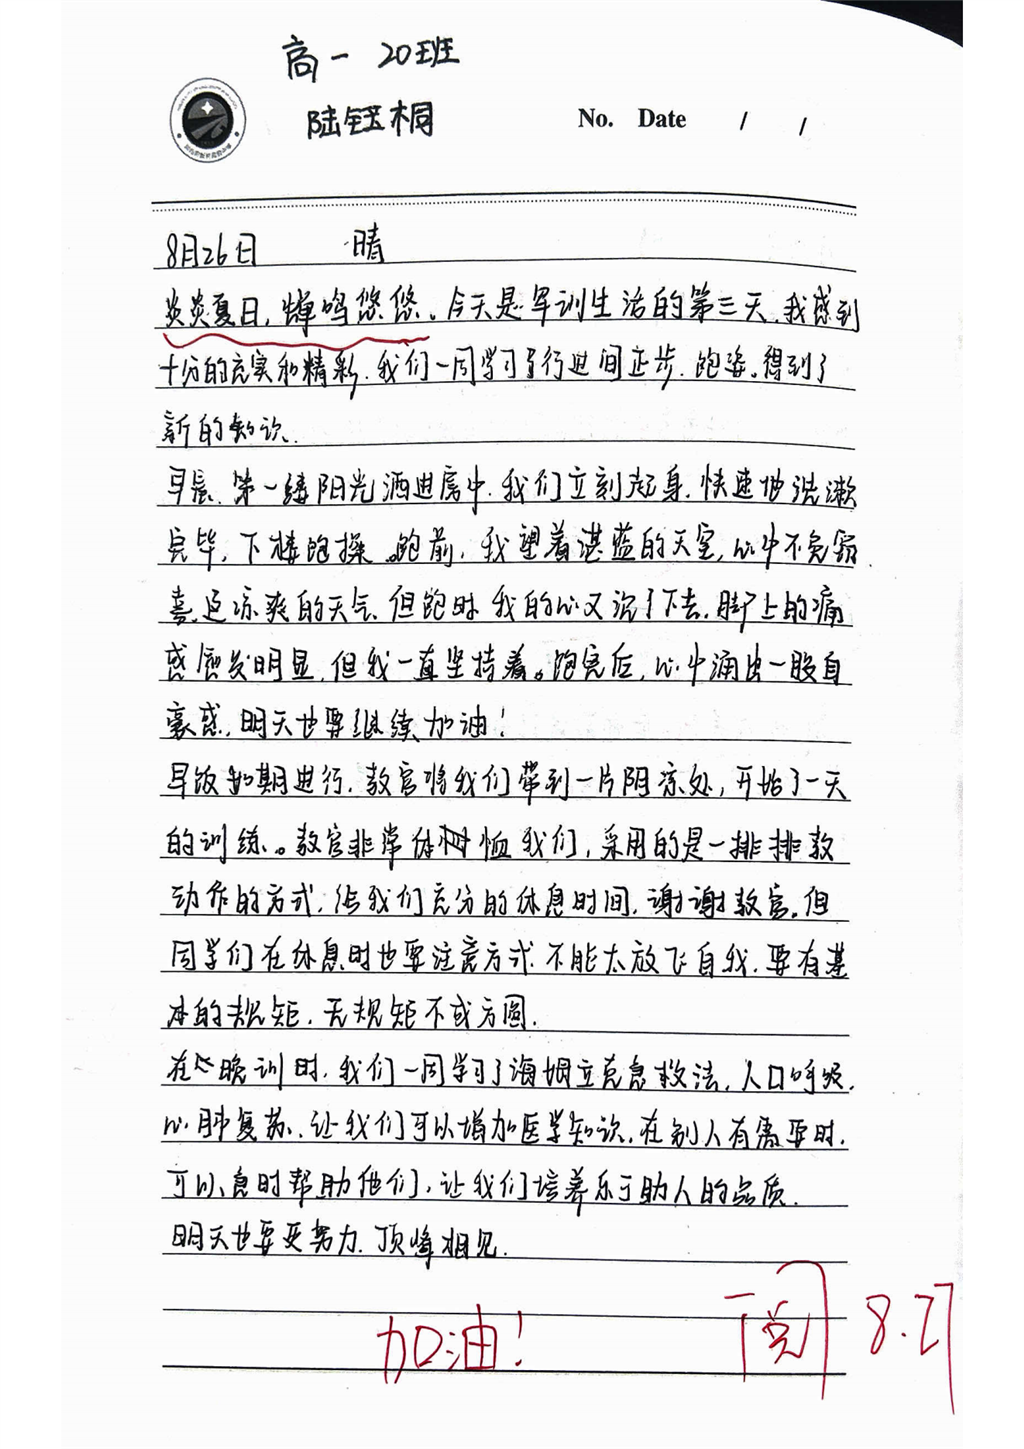 高一 20班
陆钰桐
No. Date / /
8月26日 晴
炎炎夏日,蝉鸣悠悠。今天是军训生活的第三天,我感到
十分的充实和精彩.我们一同学习了行进间正步.跑姿。得到了
新的知识.
早晨.第一缕阳光洒进房中.我们立刻起身.快速地洗漱
完毕,下楼跑操。跑前,我望着湛蓝的天空,心中不免窃
喜.这凉爽的天气.但跑时.我的心又沉了下去.脚上的痛
感愈发明显,但我一直坚持着。跑完后,心中涌出一股自
豪感,明天也要继续加油!
早饭如期进行.教官将我们带到一片阴凉处,开始了一天
的训练。教官非常体恤我们,采用的是一排排教
动作的方式,给我们充分的休息时间,谢谢教官。但
同学们在休息时也要注意方式.不能太放飞自我.要有基
本的规矩.无规矩不成方圆.
在晚训时.我们一同学习了海姆立克急救法,人口呼吸.
心肺复苏.让我们可以增加医学知识,在别人有需要时.
可以及时帮助他们,让我们培养乐于助人的品质.
明天也要更努力.顶峰相见.
加油!
阅 8.27